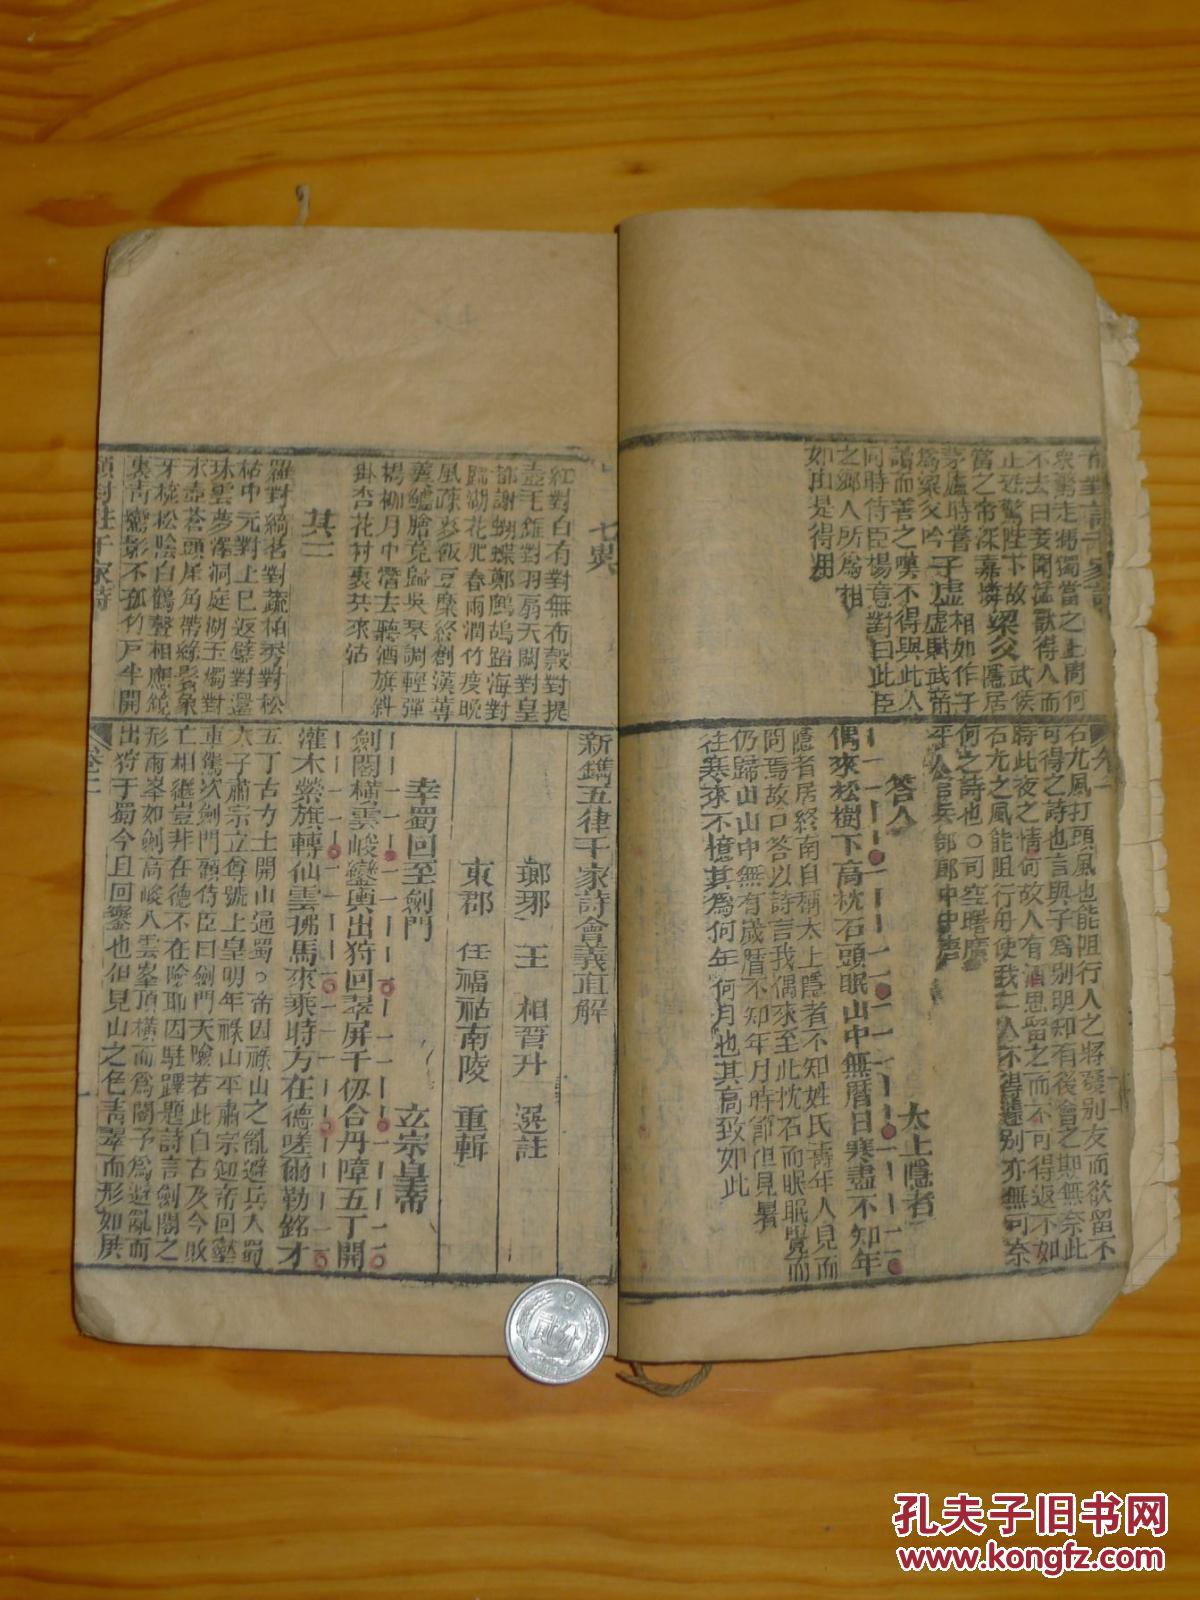 衆驚走馮獨當之上問何
不去曰妾聞猛獸得人而
止恐驚陛下故梁父武侯
當之帝深嘉憐隱居
茅廬時嘗子虛相如作子
為梁父吟虛賦武帝
讀而善之嘆不得與此人
同時侍臣楊意對曰此臣
之鄉人所為相
如由是得用
石尤風打頭風也能阻行人之將發別友而欲留不
可得之詩也言與子為別明知有後會之期無奈此
時此夜之情何故人有酒思留之而不可得返不如
石尤之風能阻行舟使我二人不得遠別亦無可奈
何之詩也○司空曙廣
平人官兵部郎中
答人
太上隱者
偶來松樹下高枕石頭眠山中無曆日寒盡不知年
隱者居終南自稱太上隱者不知姓氏壽年人見而
問焉故口答以詩言我偶來至此枕石而眠眠覺而
仍歸山山中無有歲曆不知年月時節但見暑
往寒來不憶其為何年何月也其高致如此
七虞
紅對白有對無布穀對提
壺毛錐對羽扇天闕對皇
都謝蝴蝶鄭鷓鴣蹈海對
歸湖花肥春雨潤竹瘦晚
風疎麥飯豆糜終創漢蓴
羹鱸膾竟歸吳琴調輕彈
楊柳月中潛去聽酒旗斜
掛杏花村裏共來沽
其二
羅對綺茗對蔬柏秀對松
枯中元對上巳返璧對還
珠雲夢澤洞庭湖玉燭對
氷壺蒼頭犀角帶綠鬢象
牙梳松陰白鶴聲相應鏡
裏青鸞影不孤竹戶半開
新鐫五律千家詩會義直解
瑯琊 王 相晉升 選註
東郡 任福祐南陵 重輯
幸蜀回至劍門
玄宗皇帝
劍閣橫雲峻鑾輿出狩回翠屏千仞合丹障五丁開
灌木縈旗轉仙雲拂馬來乘時方在德嗟爾勒銘才
五丁古力士開山通蜀○帝因祿山之亂避兵入蜀
太子肅宗立尊號上皇明年祿山平肅宗迎帝回鑾
車駕次劍門顧侍臣曰劍門天險若此自古及今敗
亡相繼豈非在德不在險耶因駐蹕題詩言劍閣之
形兩峯如劍高峻入雲峯頂橫而為閣予為避亂而
出狩于蜀今且回鑾也但見山之色青翠而形如屏
卷二
孔夫子旧书网
www.kongfz.com